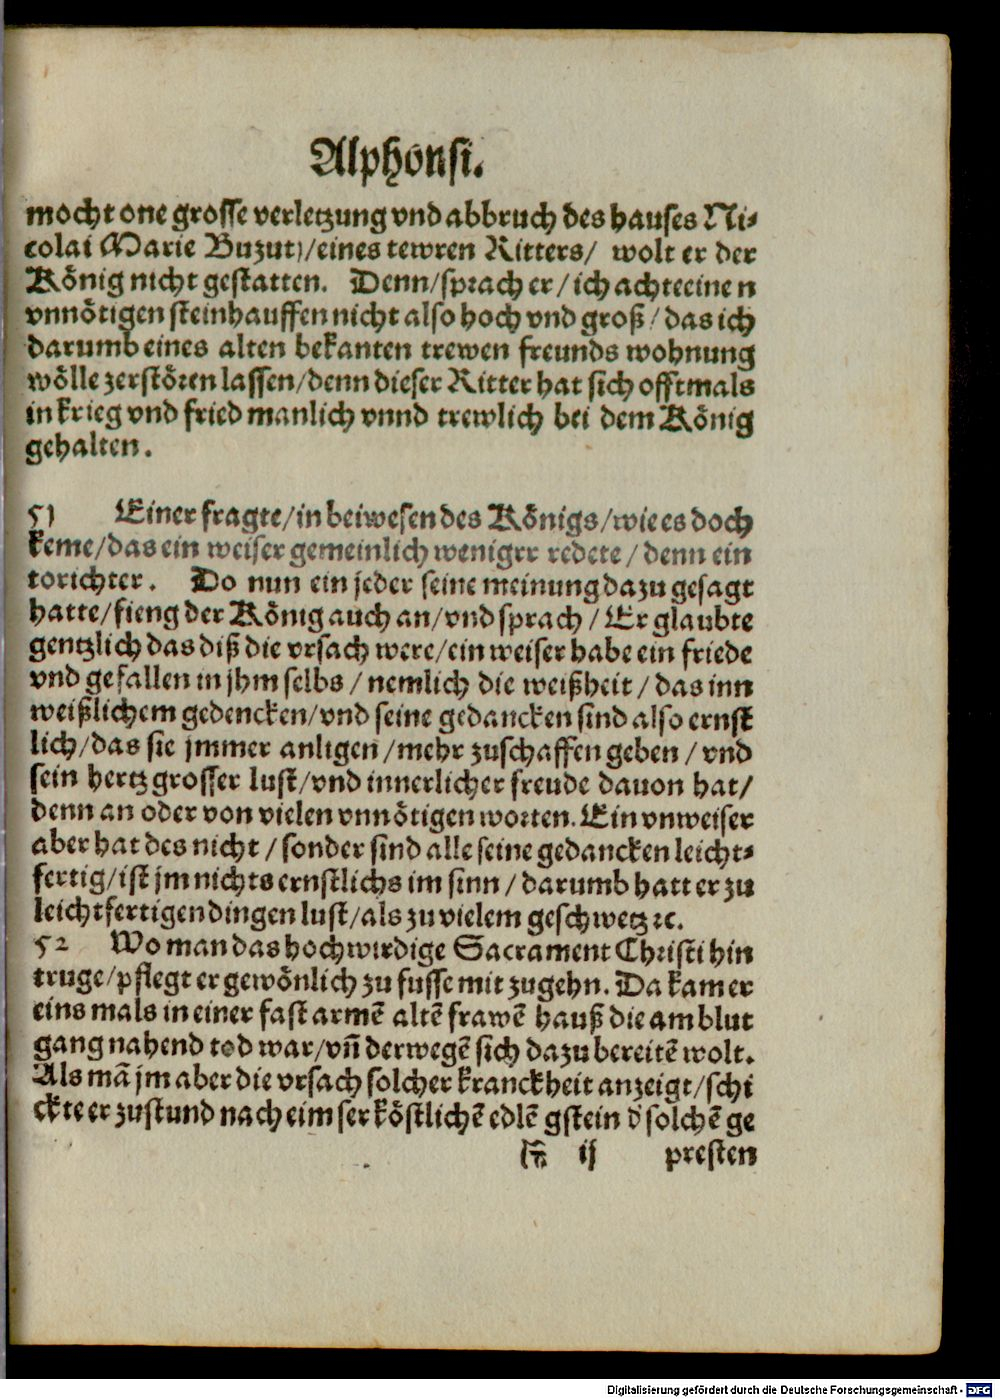 Alphonsi.
mocht one grosse verletzung vnd abbruch des hauses Ni-
colai Marie Buzuti/eines tewren Ritters/ wolt er der
König nicht gestatten. Denn/sprach er/ich achte einen
vnnötigen steinhauffen nicht also hoch vnd groß/das ich
darumb eines alten bekanten trewen freunds wohnung
wölle zerstören lassen/denn dieser Ritter hat sich offtmals
in krieg vnd fried manlich vnnd trewlich bei dem König
gehalten.
51 Einer fragte/in beiwesen des Königs/wie es doch
keme/das ein weiser gemeinlich wenigrr redete/denn ein
torichter. Do nun ein jeder seine meinung dazu gesagt
hatte/fieng der König auch an/vnd sprach/Er glaubte
gentzlich das diß die vrsach were/ein weiser habe ein friede
vnd gefallen in jhm selbs/nemlich die weißheit/das inn
weißlichem gedencken/vnd seine gedancken sind also ernst
lich/das sie jmmer anligen/mehr zuschaffen geben/vnd
sein hertz grosser lust/vnd innerlicher freude dauon hat/
denn an oder von vielen vnnötigen worten. Ein vnweiser
aber hat des nicht/sonder sind alle seine gedancken leicht-
fertig/ist jm nichts ernstlichs im sinn/darumb hatt er zu
leichtfertigen dingen lust/als zu vielem geschwetz ꝛc.
52 Wo man das hochwirdige Sacrament Christi hin
truge/pflegt er gewönlich zu fusse mit zugehn. Da kam er
eins mals in einer fast armē altē frawē hauß die am blut
gang nahend tod war/vn̄ derwegē sich dazu bereitē wolt.
Als mā jm aber die vrsach solcher kranckheit anzeigt/schi
ckte er zustund nach eim ser köstlichē edlē gstein d' solchē ge
ij presten
Digitalisierung gefördert durch die Deutsche Forschungsgemeinschaft - DFG